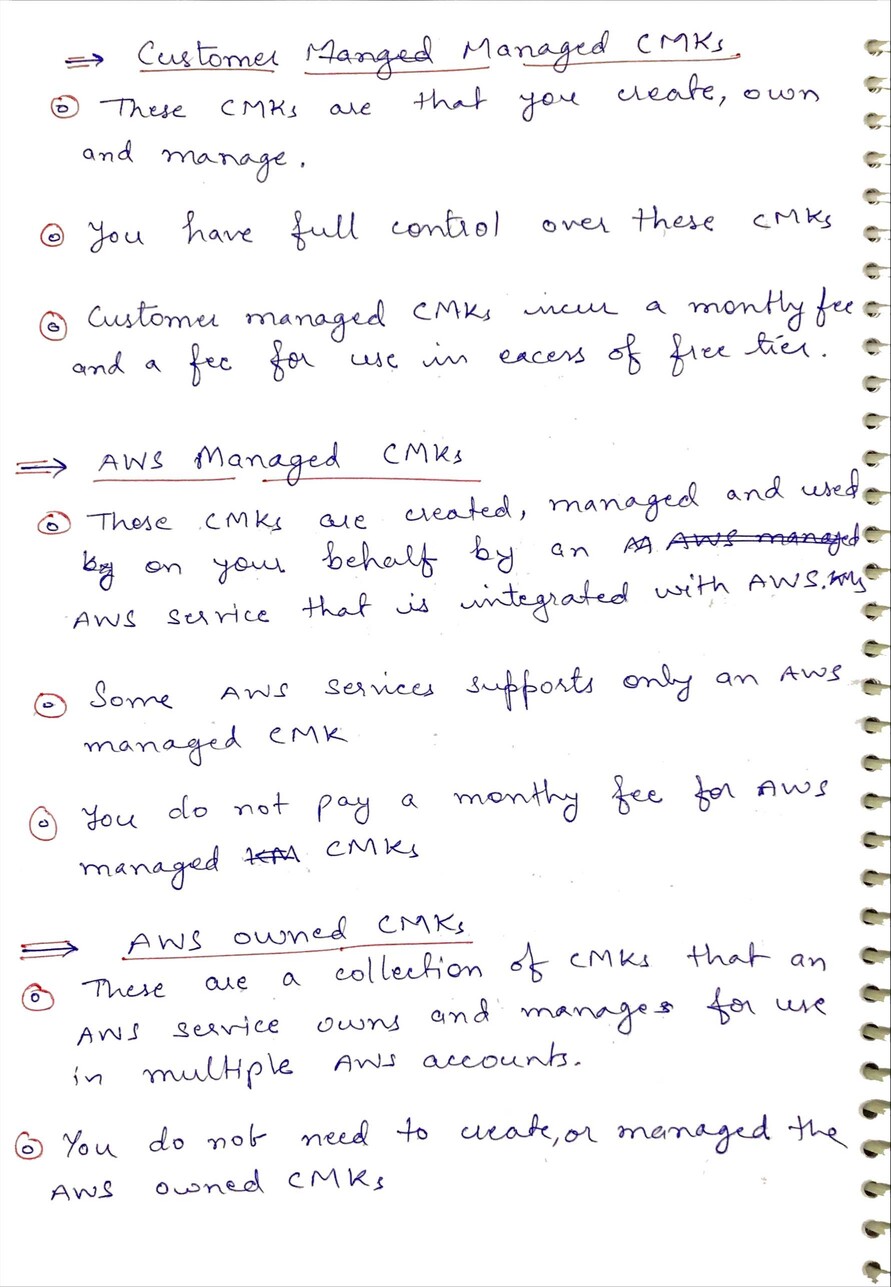 ⇒ Customer Manged Managed CMKs.
These CMKs are that you create, own
and manage.
You have full control over these CMKs
Customer managed CMKs incur a monthly fee
and a fee for use in excess of free tier.
⇒ AWS Managed CMKs
These CMKs are created, managed and used
by on your behalf by an AWS managed
AWS service that is integrated with AWS.
Some AWS services supports only an AWS
managed CMK
You do not pay a monthy fee for AWS
managed KM CMKs
⇒ AWS owned CMKs
These are a collection of CMKs that an
AWS service owns and manages for use
in multiple AWS accounts.
You do not need to create, or managed the
AWS owned CMKs